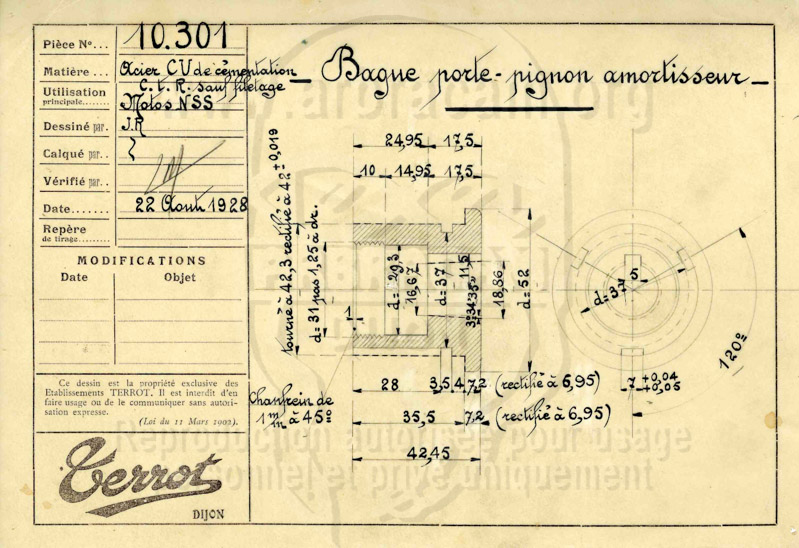 Pièce No... 10.301
Matière ... Acier CV de cémentation
C.t.R. sauf filetage
Utilisation
principale........ Motos NSS
Dessiné par. J.R
Calqué par..
Vérifié par..
Date....... 22 Août 1928
Repère
de tirage....
MODIFICATIONS
Date Objet
Ce dessin est la propriété exclusive des
Etablissements TERROT. Il est interdit d'en
faire usage ou de le communiquer sans autori-
sation expresse.
(Loi du 11 Mars 1902).
Terrot
DIJON
Bague porte-pignon amortisseur
24,95 17,5
10 14,95 17,5
tourné à 42,3 rectifié à 42 ±0,019
d=31 pas 1,25 à dr.
d=29,3
16,67
d=37
11,5
3°34'35"
18,86
d=52
1
5
d=37
120°
28 3,5 4 7,2 (rectifié à 6,95)
7 +0,04
+0,05
Chanfrein de
1 m/m à 45°
35,5 7,2 (rectifié à 6,95)
42,45
Reproduction autorisée pour usage
personnel et privé uniquement